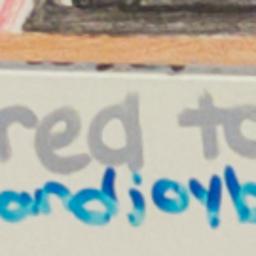 red to
andjoyb